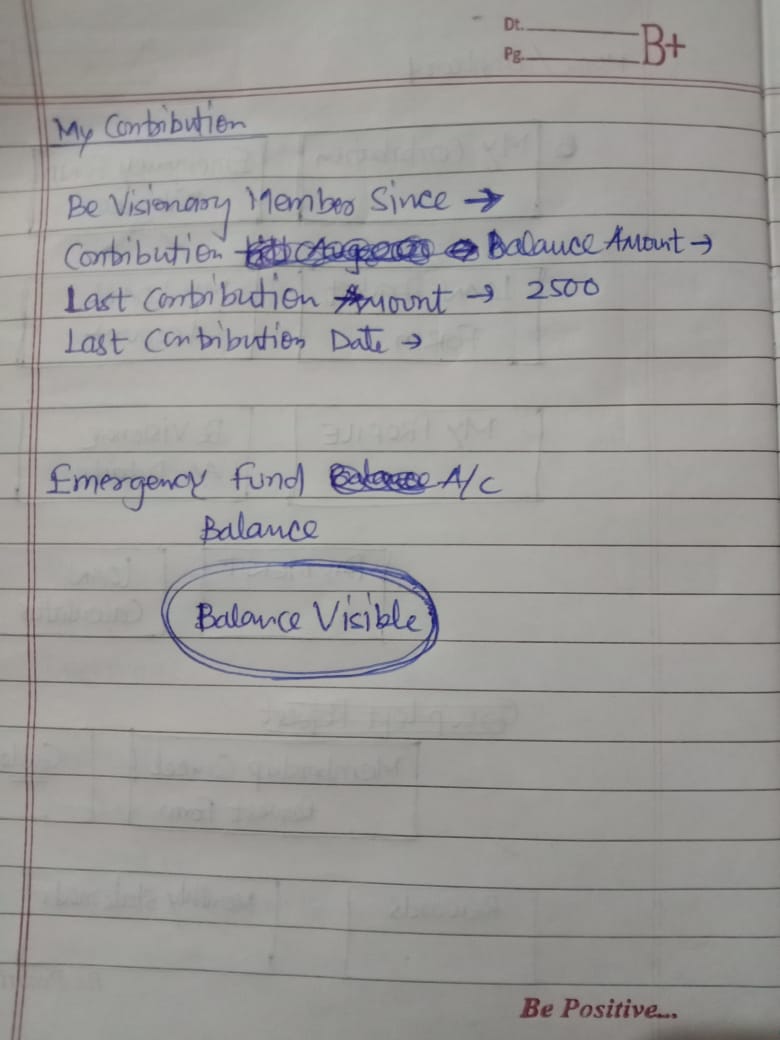 Dt.
Pg.
B+
My Contribution
Be Visionary Member Since →
Contribution Balance Amount →
Last Contribution Amount → 2500
Last Contribution Date →
Emergency Fund A/C
Balance
Balance Visible
Be Positive...